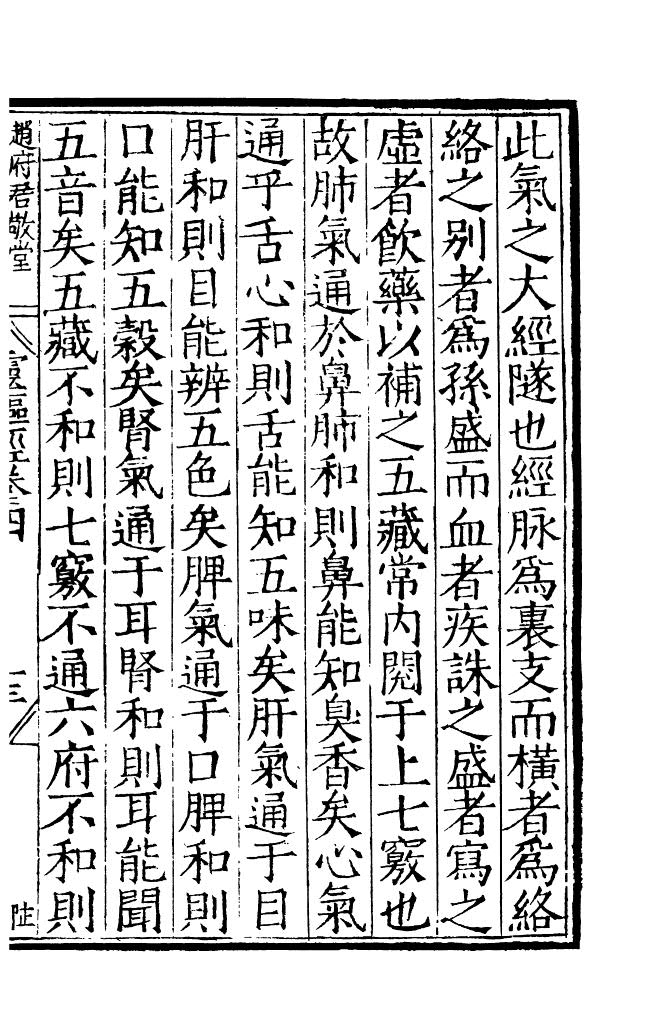 此氣之大經隧也經脉爲裏支而橫者爲絡
絡之别者爲孫盛而血者疾誅之盛者寫之
虛者飮藥以補之五藏常内閱于上七竅也
故肺氣通於鼻肺和則鼻能知臭香矣心氣
通乎舌心和則舌能知五味矣肝氣通于目
肝和則目能辨五色矣脾氣通于口脾和則
口能知五穀矣腎氣通于耳腎和則耳能聞
五音矣五藏不和則七竅不通六府不和則
趙府君敬堂
靈樞經卷四
三